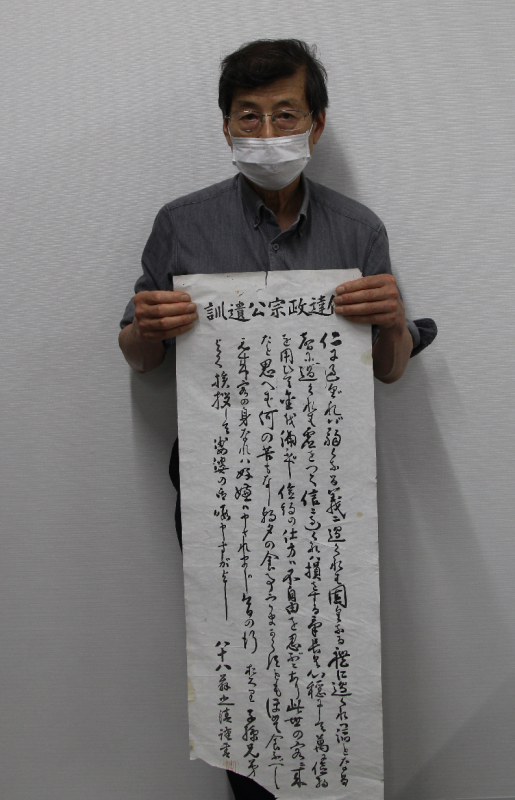 伊達政宗公遺訓
仁に過ぎれバ弱くなる義ニ過ぎれば固くなる禮に過ぎれバ諂となる
智に過ぎれば虚をつく信ニ過ぎれバ損をする気長く心穏にして萬に倹約
を用いて金銭を備ふべし倹約の仕方ハ不自由を忍ぶにあり此世の客に来
たと思へば何の苦もなし朝夕の食事うまからずともほめて食ふべし
元来客の身なれバ好嫌ハ申されまじ今日の行おくり子孫兄弟
よく挨拶して娑婆の御暇申すがよし
八十八翁 謹書